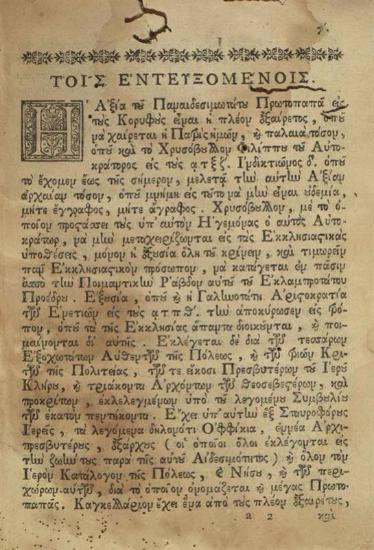 ΤΟΙ͂Σ ΕʼΝΤΕΥΞΟΜΕʹΝΟΙΣ.
Η Ἀξία τοῦ Παναιδεσιμωτάτου Πρωτοπαπᾶ εἰς
τοὺς Κορυφοὺς εἶναι ἡ πλέον ἐξαίρετος, ὁποῦ
νὰ χαίρεται ἡ Πατρὶς ἡμῶν, καὶ παλαιὰ τόσον,
ὁποῦ καὶ τὸ Χρυσόβουλλον Φιλίππου τοῦ Αὐτο-
κράτορος εἰς τοὺς ατξζ. Ἰνδικτιῶνος δ. ὁποῦ
τὸ ἔχομεν ἕως τῆς σήμερον, μελετᾷ τὴν αὐτὴν Ἀξίαν
ἀρχαίαν τόσον, ὁποῦ μνήμη εἰς τοῦτο νὰ μὴν εἶναι οὐδεμία,
μήτε ἔγγραφος, μήτε ἄγραφος. Χρυσόβουλλον, μὲ τὸ ὁ-
ποῖον προστάσσει τοὺς ὑπ' αὐτὸν Ἡγεμόνας ὁ αὐτὸς Αὐτο-
κράτωρ, νὰ μὴν μεταχειρίζωνται εἰς τὰς Ἐκκλησιαστικὰς
ὑποθέσεις, μόνον ἡ Ἐξουσία ὅλη τοῦ κρίνειν, καὶ τιμωρεῖν
πᾶν Ἐκκλησιαστικὸν πρόσωπον, νὰ κατάγεται ἐν πᾶσιν
ὑπὸ τὴν Ποιμαντικὴν Ῥάβδον αὐτοῦ τοῦ Ἐκλαμπροτάτου
Προέδρου. Ἐξουσία, ὁποῦ καὶ ἡ Γαληνοτάτη Ἀριστοκρατία
τῶν Ἐνετιῶν εἰς τοὺς ατπθʹ. τὴν ἀποκύρωσεν εἰς τρό-
πον, ὁποῦ τὰ τῆς Ἐκκλησίας ἅπαντα διοικοῦνται, καὶ ποι-
μαίνονται δι' αὐτῆς. Ἐκλέγεται δὲ διὰ τῶν τεσσάρων
Ἐξοχωτάτων Αὐθεντῶν τῆς Πόλεως, καὶ τῶν τριῶν Κρι-
τῶν τῆς Πολιτείας, τῶν τε εἴκοσι Πρεσβυτέρων τοῦ Ἱεροῦ
Κλήρου, καὶ τριάκοντα Ἀρχόντων τῶν Θεοσεβεστέρων, καὶ
προκρίτων, ἐκλελεγμένων ὑπὸ τοῦ λεγομένου Συμβουλίου
τῶν ἑκατὸν πεντήκοντα. Ἔχει ὑπ' αὐτὸν ἓξ Σταυροφόρους
Ἱερεῖς, τὰ λεγόμενα δηλονότι Ὀφφίκια, ἐννέα Ἀρχι-
πρεσβυτέρους, ἐξάρχους (οἱ ὁποῖοι ὅλοι ἐκλέγονται εἰς
τὴν ζωήν τους παρὰ τῆς αὐτοῦ Αἰδεσιμότητος) καὶ ὅλον τὸν
Ἱερὸν Κατάλογον τῆς Πόλεως, καὶ Νήσου, καὶ τῶν περι-
χώρων αὐτοῦ, διὰ τὸ ὁποῖον ὀνομάζεται καὶ μέγας Πρωτο-
παπᾶς. Καγκελλάριον ἔχει ἕνα ἀπὸ τοὺς πλέον ἐξαιρέτους,
a 2 καὶ